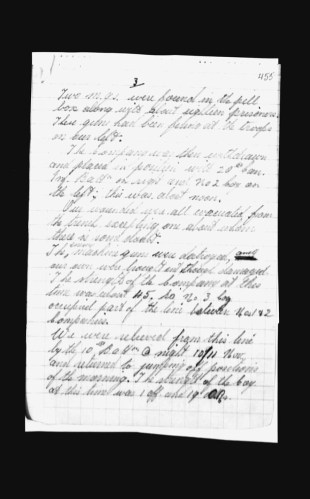 455
3
Two m.gs. were found in the pill
box along with about eighteen prisoners.
These guns had been firing at the troops
on our left.
The Company was then withdrawn
and placed in position with 20th Can.
Inf. Battn on right and No 2 Coy on
the left; this was about noon.
Our wounded were all evacuated from
the trench excepting one about whom
there is some doubt.
The machine guns were destroyed,
our own were brought out though damaged.
The strength of the Company at this
time was about 45. No 3 Coy
occupied part of the line between No 1 & 2
Companies.
We were relieved from this line
by the 10th Battn night 10/11 Nov,
and returned to jumping off positions
of the morning. The strength of the Coy
at this time was 1 off. and 19 O.Rs.